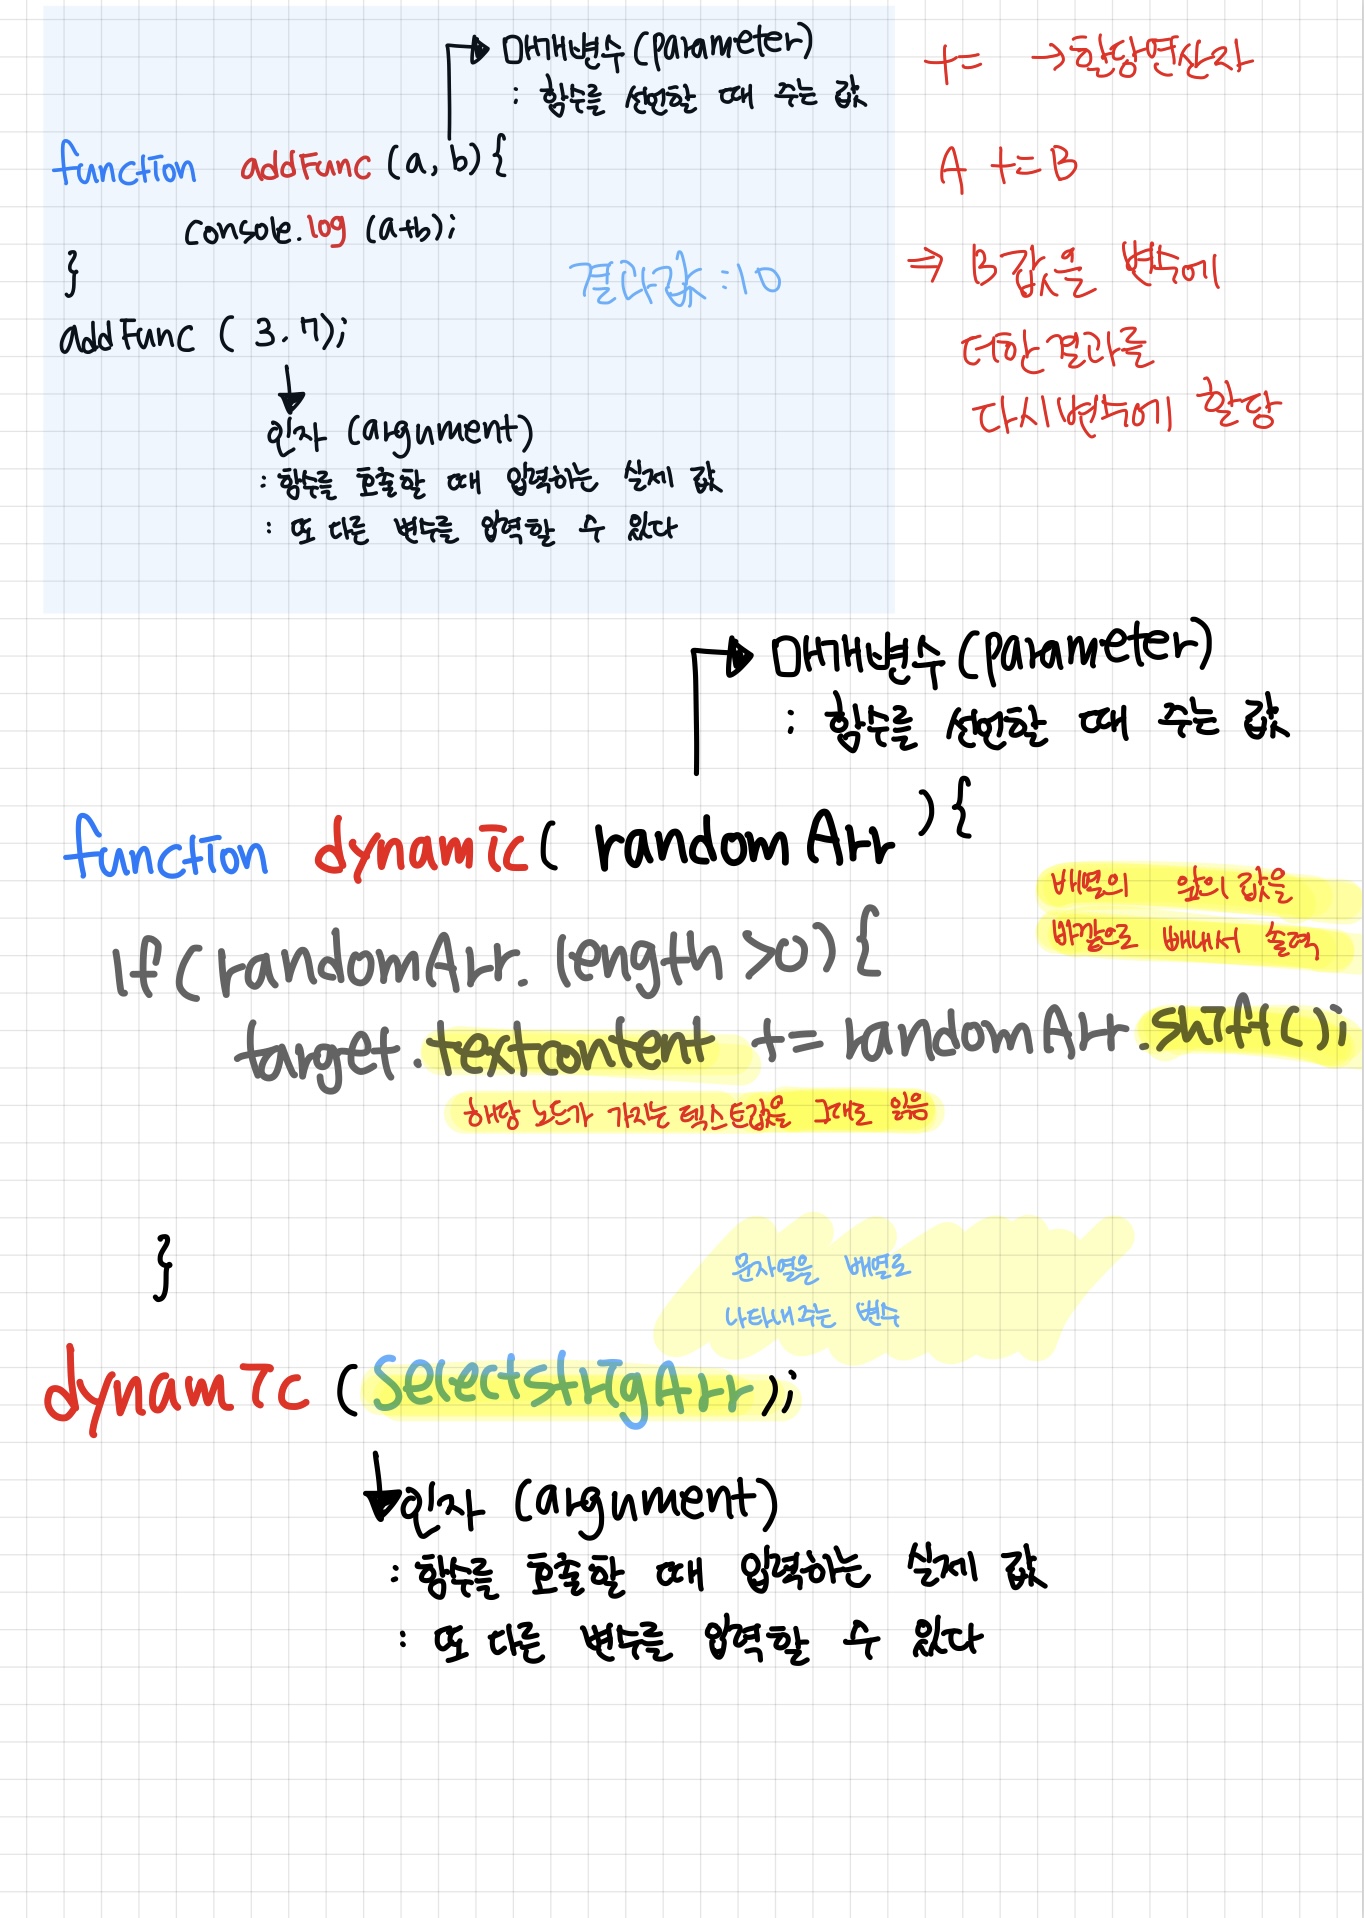 매개변수 (parameter)
: 함수를 선언할 때 주는 값
function addFunc (a, b) {
console.log (a+b);
}
결과값 : 10
addFunc ( 3. 7);
인자 (argument)
: 함수를 호출할 때 입력하는 실제 값
: 또 다른 변수를 입력할 수 있다
+= → 할당연산자
A += B
⇒ B 값을 변수에
더한 결과를
다시 변수에 할당
매개변수 (parameter)
: 함수를 선언할 때 주는 값
function dynamic( randomArr ) {
배열의 앞의 값을
바깥으로 빼내서 출력
if ( randomArr. length >0) {
target.textcontent += randomArr.shift();
해당 노드가 가지는 텍스트값을 그대로 읽음
}
문자열을 배열로
나타내주는 변수
dynamic (SelectstrigArr);
인자 (argument)
: 함수를 호출할 때 입력하는 실제 값
: 또 다른 변수를 입력할 수 있다